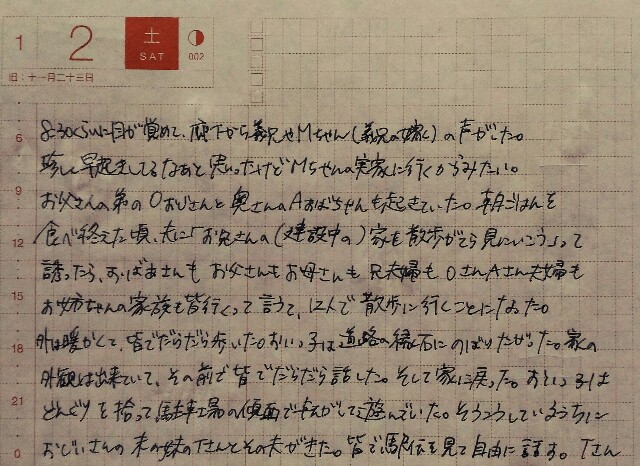 1
2
土
SAT
002
旧:十一月二十三日
6
9
12
15
18
21
0
8:30くらいに目が覚めて、廊下から義兄やMちゃん(義兄の嫁)の声がした。
珍しく早起きしてるなあと思ったけどMちゃんの実家に行くからみたい。
お父さんの弟のOおじさんと奥さんのAおばちゃんも起きていた。朝ごはんを
食べ終えた頃、夫に「お兄さんの(建設中の)家も散歩がてら見にいこう」って
誘ったら、おばあさんもお父さんもお母さんもR夫婦もOさんAさん夫婦も
お姉ちゃんの家族も皆行くって言うて、12人で散歩に行くことになった。
外は暖かくて、皆でだらだら歩いた。おいっ子は道路の縁石にのぼりたがった。家の
外観は出来ていて、その前で皆でだらだら話した。そして家に戻った。おいっ子は
どんぐりを拾って駐車場の傾面で転がして遊んでいた。そうこうしているうちに
おじいさんの末の妹のTさんとその夫がきた。皆で駅伝を見て自由に話す。Tさん